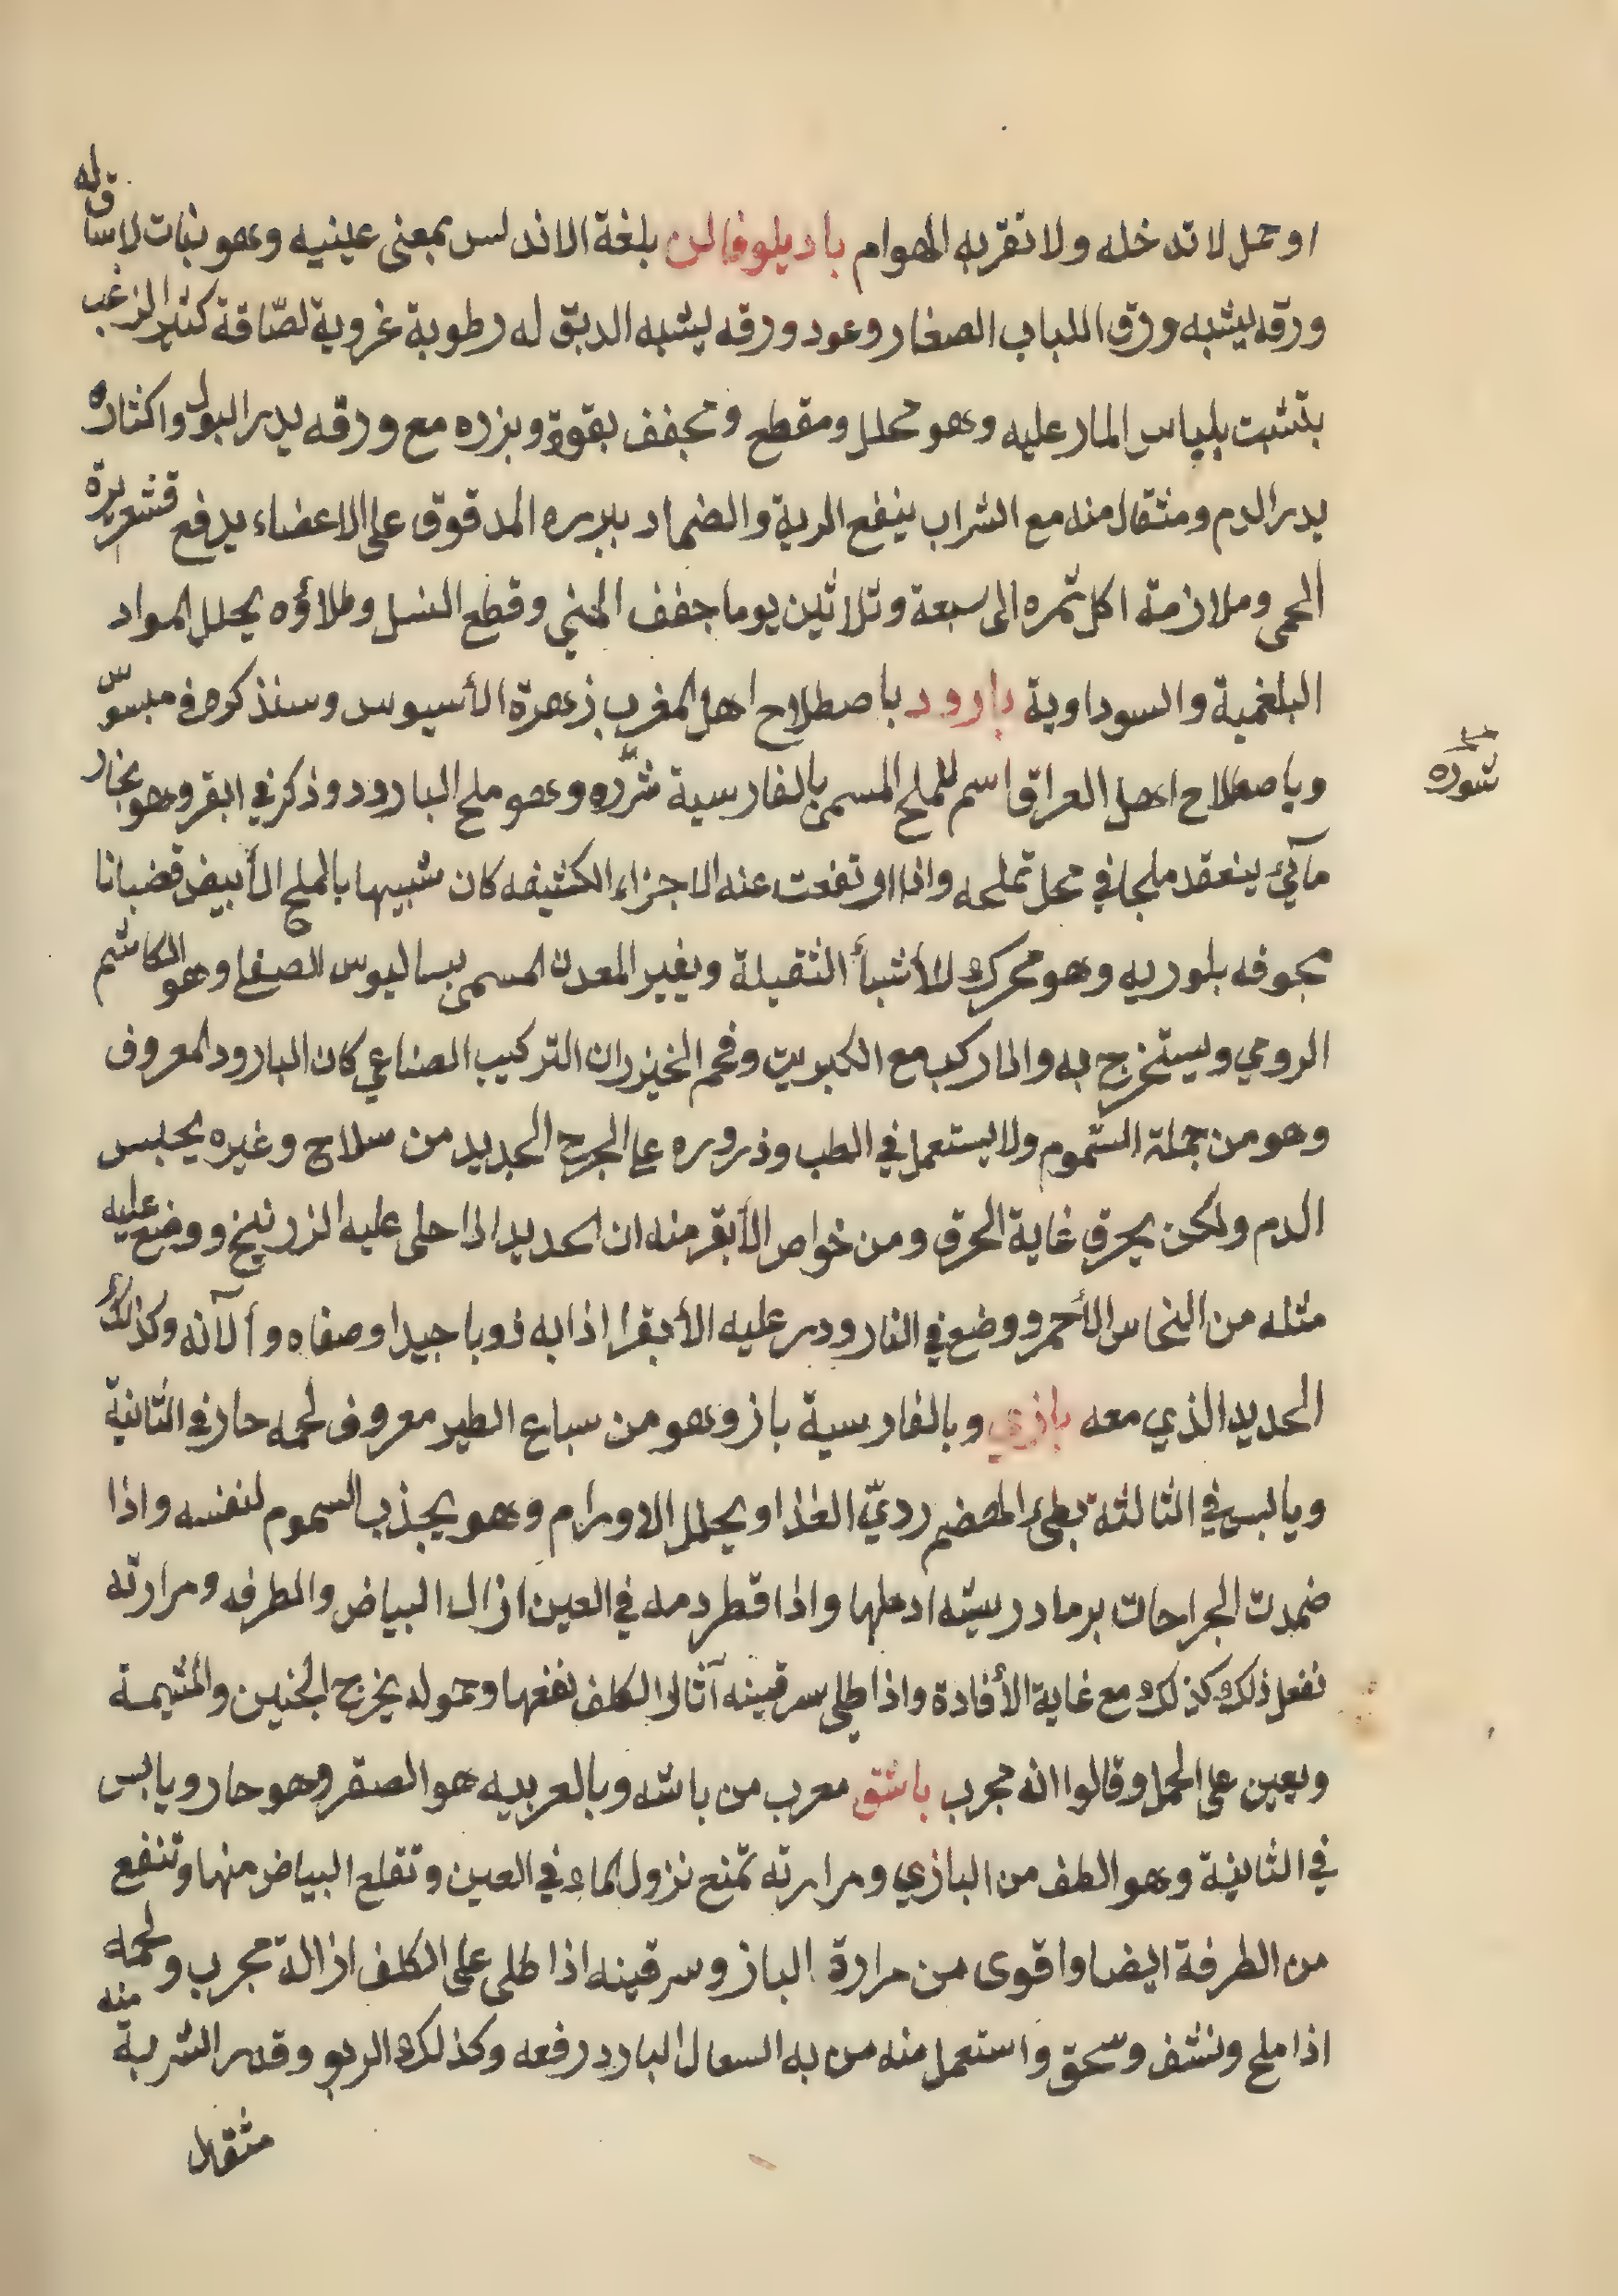 او حمل لا تدخله ولا تقربه الهوام باديلوفالن بلغة الاندلس بمعنى عينيه وهو نبات لا ساق له
ورقه يشبه ورق اللباب الصغار وعود ورقه يشبه الدبق له رطوبة غروية لصّاقة كثير الزغب
يتشبت بلباس المار عليه وهو محلل ومقطع ومجفف بقوة وبزره مع ورقه يدر البول واكثاره
يدر الدم ومثقال منه مع الشراب ينفع الرية والضماد ببزره المدقوق على الاعضاء يدفع قشعريرة
الحمى وملازمة اكل ثمره الى سبعة وثلاثين يوما جفف المني وقطع النسل وطلاؤه يحلل المواد
البلغمية والسوداوية بارود باصطلاح اهل المغرب زهرة الأسيوس وسنذكره في مبسوّس
وباصطلاح اهل العراق اسم للملح المسمى بالفارسية شرّره وهو ملح البارود وذكر في ابقر وهو بخار
شوره
مآئي ينعقد ملحا في محل تملحه واذا ارتفعت عنه الاجزاء الكثيفه كان شبيها بالملح الأبيض قضبانا
مجوفه بلوريه وهو محرك للأشيأ الثقيلة وبغير المعدن المسمى بساليوس الصفا وهو الكاشم
الرومي ويستخرج به واذا ركب مع الكبريت وفحم الخيزران التركيب الصناعي كان البارود المعروف
وهو من جملة السموم ولا يستعمل في الطب وذروره على الجرح الجديد من سلاح وغيره يحبس
الدم ولكن يحرق غاية الحرق ومن خواص الأبقر منه ان الحديد اذا حلى عليه الزرنيخ ووضع عليه
مثله من النحاس الأحمر ووضع في النار ودر عليه الأبقر اذابه ذوبا جيدا وصفاه وألآنه وكذلك
الحديد الذي معه بازي وبالفارسية باز وهو من سباع الطير معروف لحمه حار في الثانية
ويابس في الثالثة بطئ الهضم رديّ الغذا ويحلل الاورام وهو يجذب السموم لنفسه واذا
ضمدت الجراحات برماد ريشه ادملها واذا قطر دمه في العين ازال البياض والطرفه ومرارته
تفعل ذلك كذلك مع غاية الأفادة واذا طلى سرقينه آثار الكلف نفعها وحموله يخرج الجنين والمشيمة
ويعين على الحمل وقالوا انه مجرب باشق معرب من باشه وبالعربيه هو الصقر وهو حار ويابس
في الثانية وهو الطف من البازي ومرارته تمنع نزول الماء في العين وتقلع البياض منها وتنفع
من الطرفة ايضا واقوى من مرارة الباز وسرقينه اذا طلى على الكلف ازالة مجرب ولحمه
اذا ملح ونشف وسحق واستعمل منه من به السعال البارد رفعه وكذلك الربو وقدر الشربة منه
مثقال